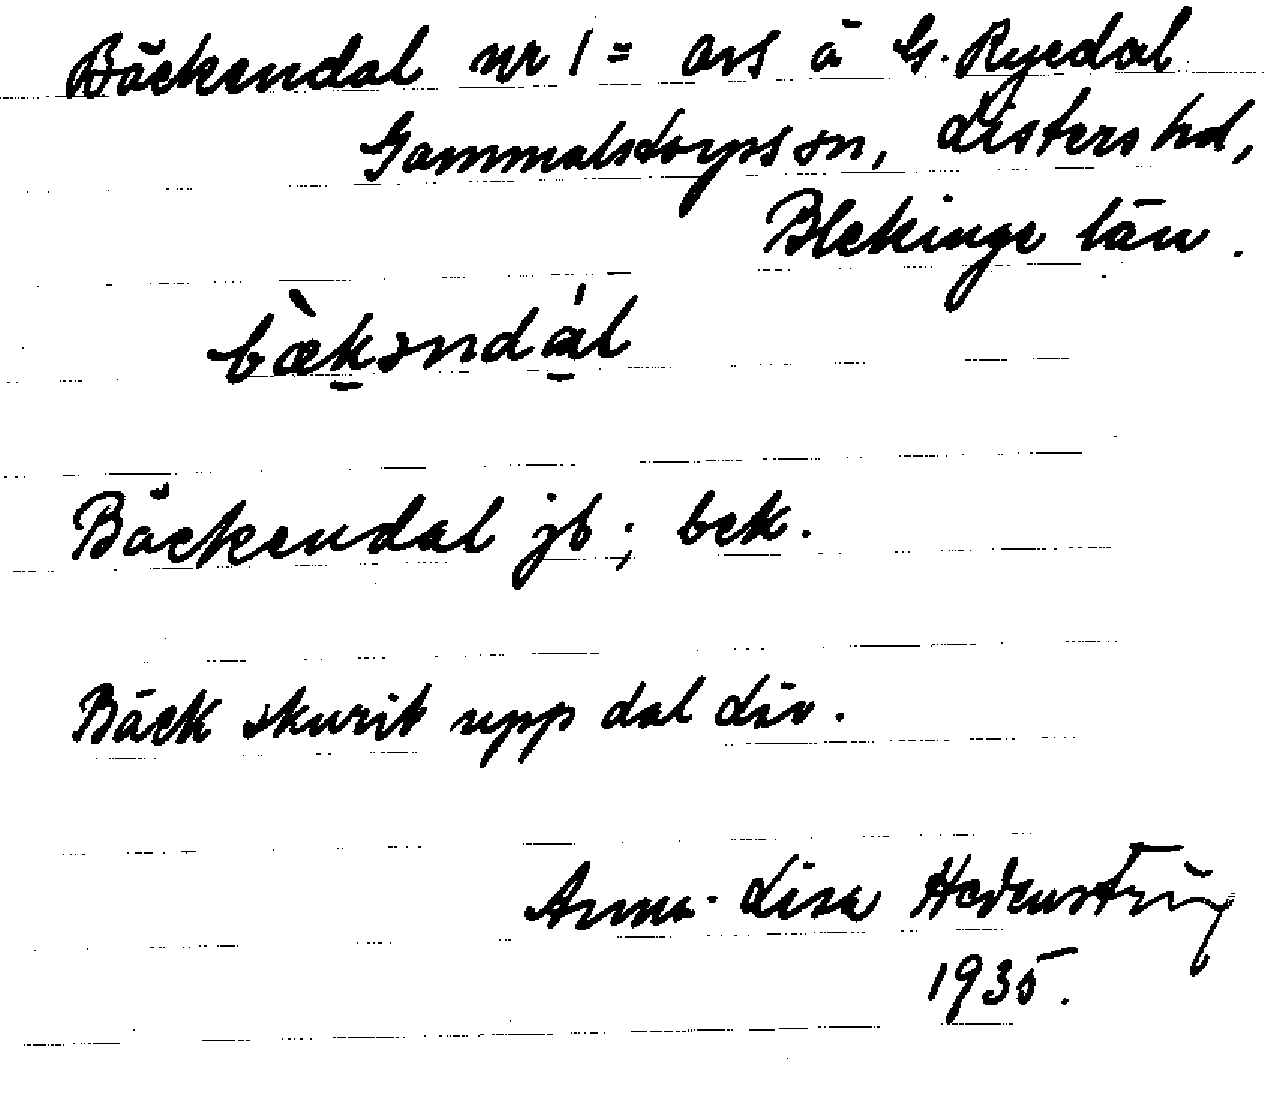 Bäckendal nr 1 = avs å G. Ryedal
Gammalstorps sn, Listers hd,
Blekinge län.
bæ̀kəndál
Bäckendal jb; bek.
Bäck skurit upp dal där.
Anna-Lisa Hedenstierna
1935.